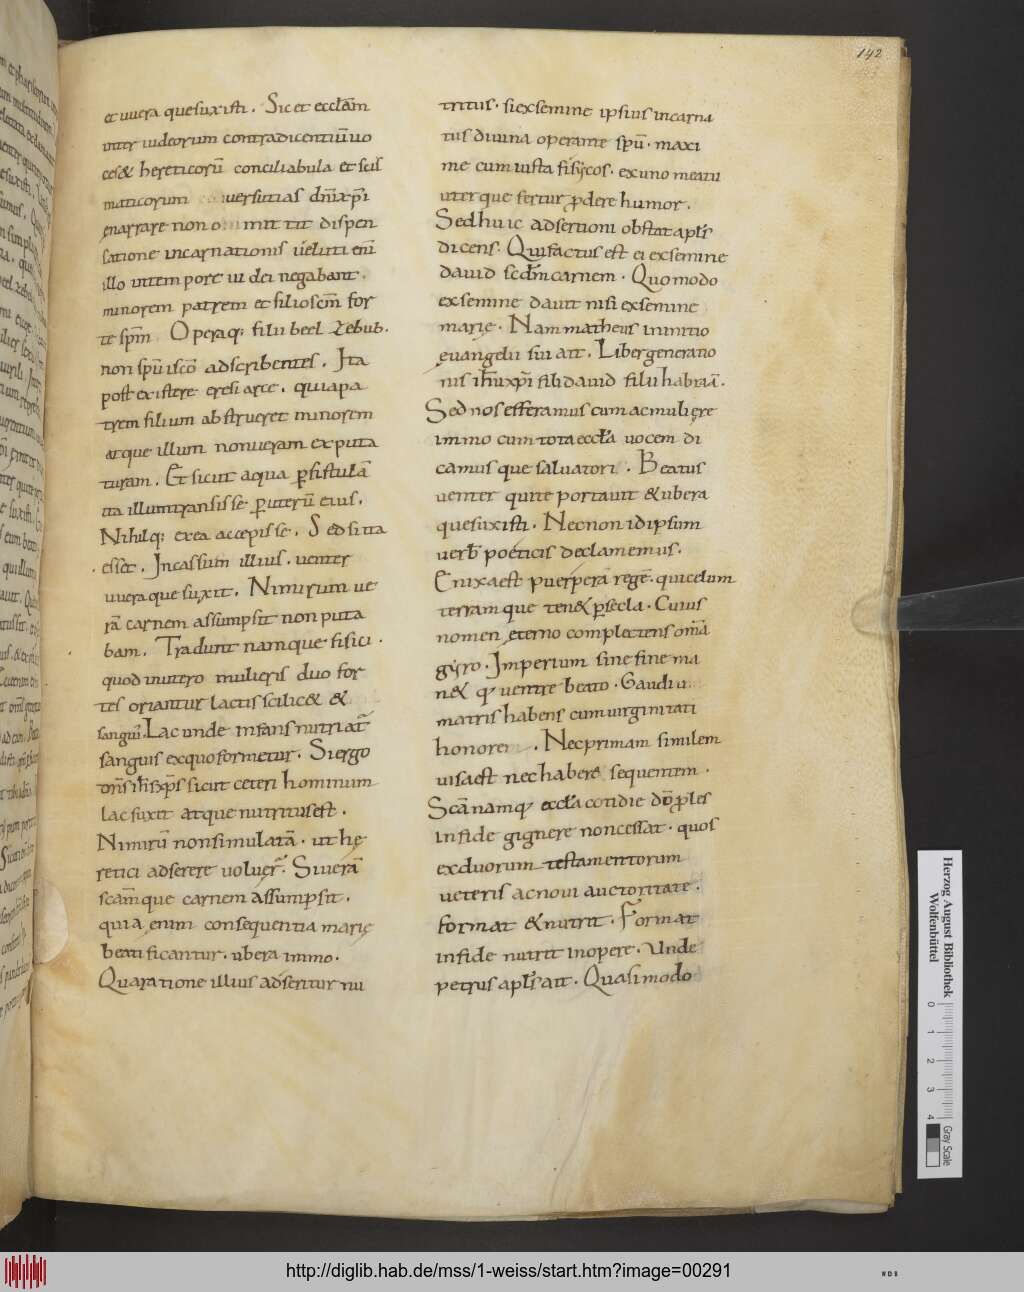 142
et uuera quesuxisti. Sic et eccłam
inter iudeorum contradicentiū uo
ces& hereticorū conciliabula et scis
maticorum uersutias dnīxpī
enarrare non omittit dispen
satione incarnationis uelut enī
illo intempore ui dei negabant.
minorem patrem et filioscm̄ for
te spm̄ Operaq; filii beel zebub.
non spū iscō adscribentes. Ita
post existere eresiarce. quiapa
trem filium abstrueret minorem
atque illum nonueram exputa
turam. Et sicut aqua ꝑfistulā
ita illumtransisse ꝑuterū eius.
Nihilq; exea accepisse. Sedsiita
esset. Incassum illius. uenter
uueraque suxit. Nimirum ue
rā carnem assumpsit non puta
bam. Tradunt namque fisici.
quod inutero mulieris duo for
tes oriantur lactis scilic& &
sanguīī. Lac unde infans nutriat̄
sanguis exquoformetur. Siergo
dn̄s ih̄sxp̄s sicut ceteri hominum
lac suxit atque nutritusest.
Nimirū nonsimulatā. ut hę
retici adserere uoluer̄. Siuerā
scām que carnem assumpsit.
quia enim consequentia marię
beatificantur. ubera immo.
Quaratione illius adseritur nu
tritus. siexsemine ipsius incarna
tus diuina operante spū. maxi
me cum iusta fisẏcos. exuno meatu
uterque fertur ꝓdere humor.
Sedhuic adsertioni obstat apłs
dicens. Quifactus est ei exsemine
dauid scd̄m carnem. Quomodo
exsemine dauit nisi exsemine
marię. Nam matheus ininitio
euangelii sui ait. Liber generatio
nis ih̄uxpī filidauid filii habraā.
Sed nos efferamus cum ac muliere
immo cum tota eccła uocem di
camus que saluatori. Beatus
uenter quite portauit & ubera
quesuxisti. Necnon idipsum
uerb̄ poeticis declamemus.
Enixaest puerpera regē. quicelum
terramque ten& ꝑsecla. Cuius
nomen ęterno complectens om̄a
gẏro. Imperium sinefine ma
n& qꝫ uentre beato. Gaudia
matris habens cum uirginitati
honore. Nec primam similem
uisaest nec habere sequentem.
Scā namqꝫ eccła cotidie dō ꝓles
infide gignere noncessat. quos
exduorum testamentorum
ueteris ac noui auctoritate.
format & nutrit. Format
infide nutrit inopere. Unde
petrus apłs ait. Quasimodo
Herzog August Bibliothek
Wolfenbüttel
0 1 2 3 4
Gray Scale
http://diglib.hab.de/mss/1-weiss/start.htm?image=00291